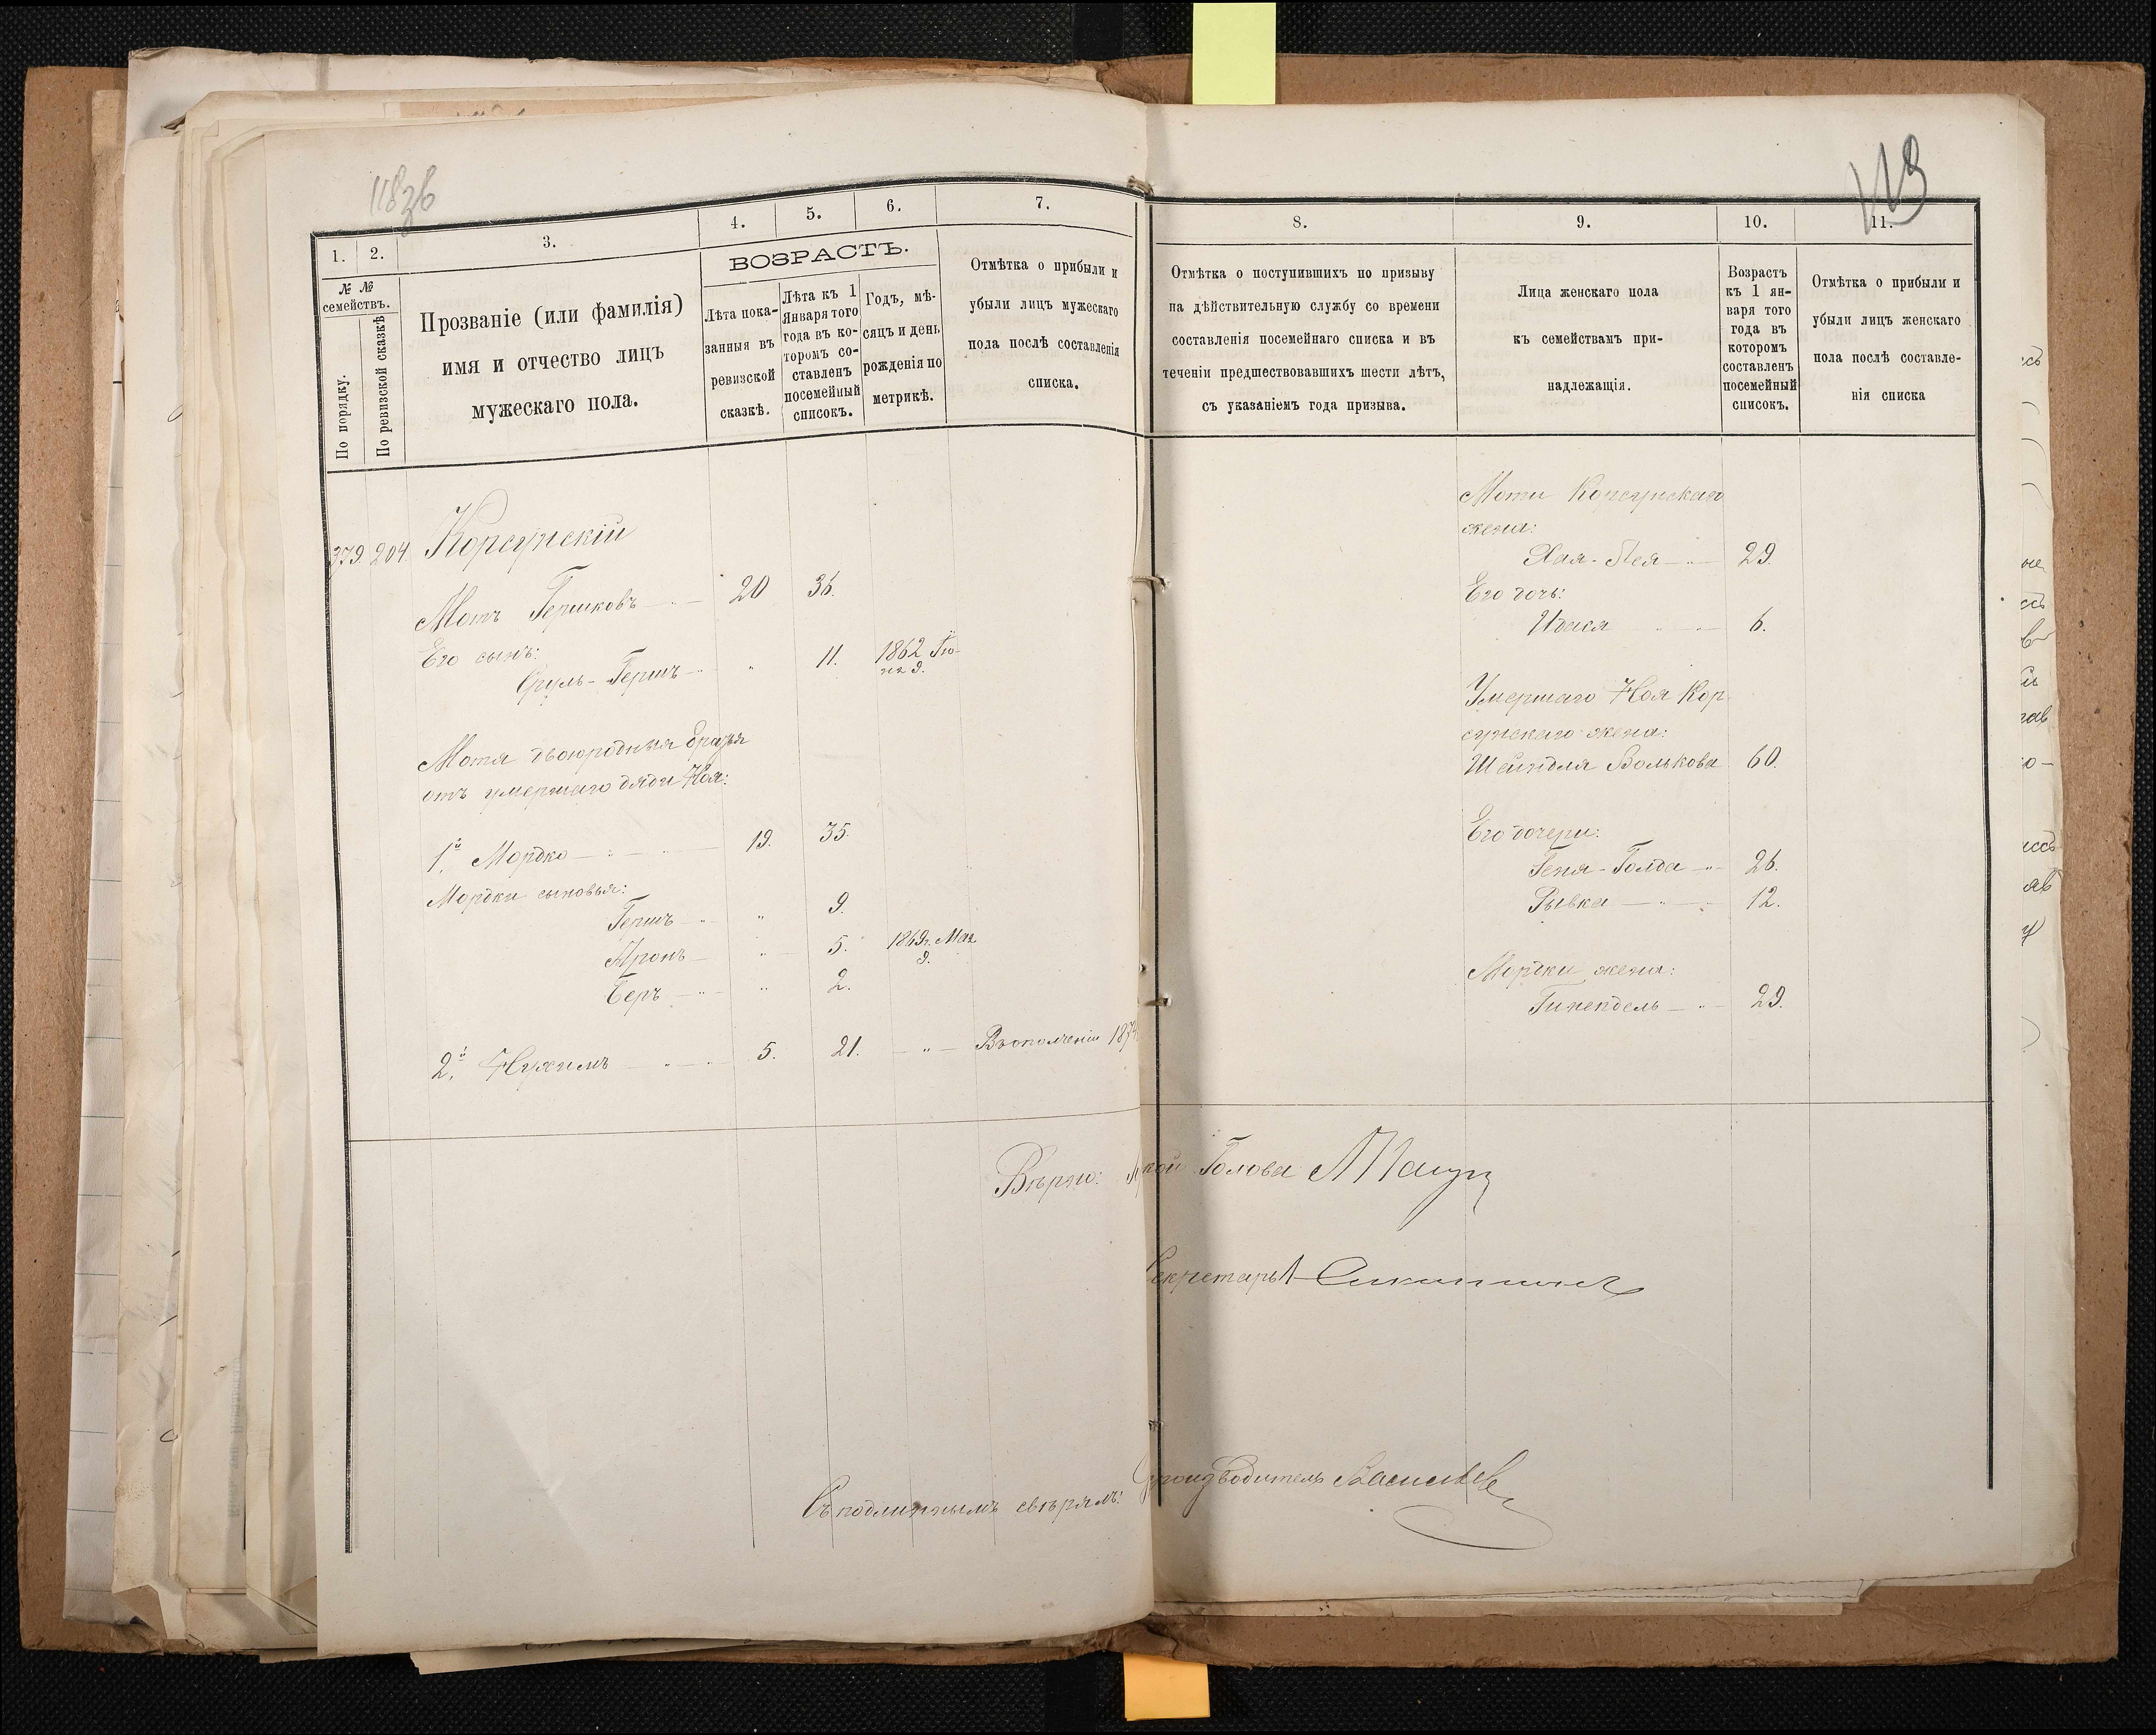 118зв
1.
2.
3.
4.
5.
6.
7.
№ №
семействъ.
По порядку.
По ревизской сказкѣ
Прозваніе (или фамилія)
имя и отчество лицъ
мужескаго пола.
ВОЗРАСТЪ.
Лѣта пока-
занныя въ
ревизской
сказкѣ.
Лѣта къ 1
Января того
года въ ко-
торомъ со-
ставленъ
посемейный
списокъ.
Годъ, мѣ-
сяцъ и день
рожденія по
метрикѣ.
Отмѣтка о прибыли и
убыли лицъ мужескаго
пола послѣ составленія
списка.
379. 204. Корсунскій
Мотъ Гершковъ 20 36.
Его сынъ:
Сруль-Гершъ " 11. 1862 Ію-
ня 9.
Мотя двоюродныя братья
отъ умершаго дяди Ноя:
1й. Мордко 19. 35.
Мордки сыновья:
Гершъ " 9.
Аронъ " 5. 1869г. Мая
9.
Беръ " 2.
2й. Нухимъ 5. 21. " Въ ополченіи 187
Вѣрно:
Съ подлиннымъ свѣрялъ:
113
8.
9.
10.
11.
Отмѣтка о поступившихъ по призыву
на дѣйствительную службу со времени
составленія посемейнаго списка и въ
теченіи предшествовавшихъ шести лѣтъ,
съ указаніемъ года призыва.
Лица женскаго пола
къ семействамъ при-
надлежащія.
Возрастъ
къ 1 ян-
варя того
года въ
которомъ
составленъ
посемейный
списокъ.
Отмѣтка о прибыли и
убыли лицъ женскаго
пола послѣ составле-
нія списка
Моти Корсунскаго
жена:
Хая-Лея 29.
Его дочь:
Идася 6.
Умершаго Ноя Кор-
сунскаго жена:
Шейндля Волькова 60.
Его дочери:
Геня-Голда 26.
Рывка 12.
Мордки жена:
Гинендель 29.
кой Голова
Секретарь
производитель Васильев